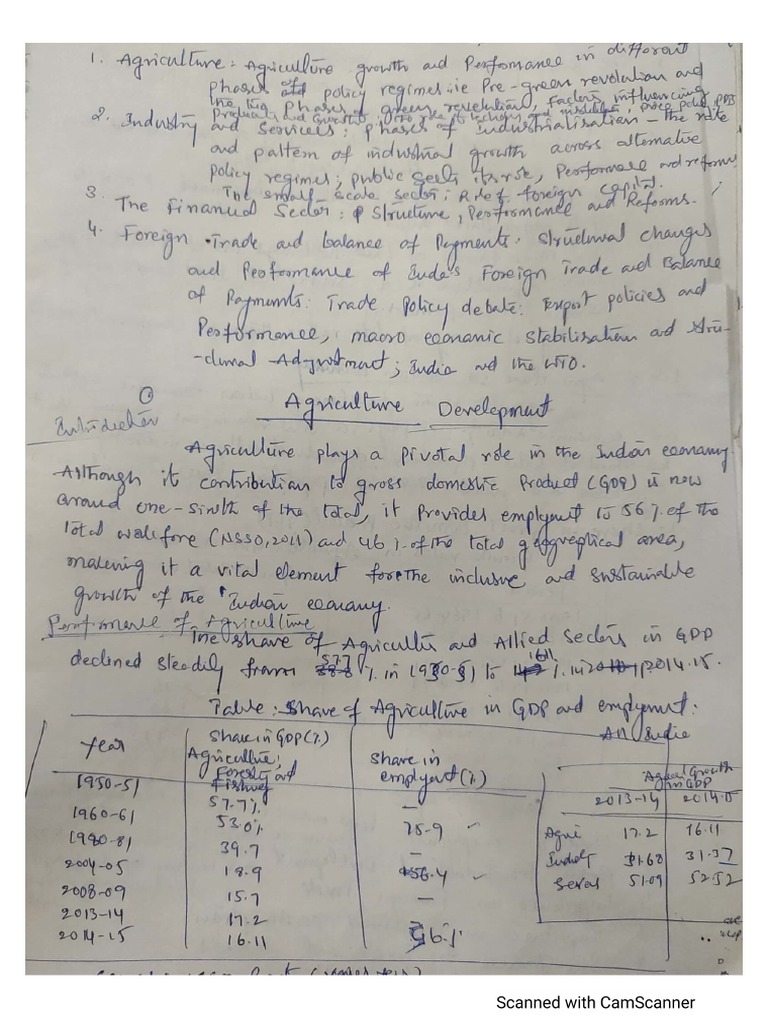 1. Agriculture: Agriculture growth and Performance in different
phases and policy regimes: ie Pre-green revolution and
the two phases of green revolution, factors influencing
Productivity and the role of technology and institutions, price policy, PDS
2. Industry and Services: phases of Industrialisation - the rate
and pattern of industrial growth across alternative
policy regimes; public sector its role, Performance and reforms
The small-scale sector; Role of foreign capital.
3. The Financial Sector: Structure, Performance and Reforms.
4. Foreign Trade and balance of Payments. Structural changes
and Performance of India's Foreign Trade and Balance
of Payments: Trade Policy debate: Export policies and
Performance, macro economic Stabilisation and Stru-
-ctural Adjustment; India and the WTO.
①
Agriculture Development
Introduction
Agriculture plays a pivotal role in the Indian economy.
Although it contribution to gross domestic Product (GDP) is now
around one-sixth of the total, it provides employment to 56% of the
total workforce (NSSO, 2011) and 46% of the total geographical area,
making it a vital element for the inclusive and sustainable
growth of the Indian economy.
Performance of Agriculture
The share of Agriculture and Allied Sectors in GDP
declined steadily from 57.7% in 1950-51 to 16.11% in 2014-15.
Table: Share of Agriculture in GDP and employment:
All India
Year Share in GDP(%) Agriculture, Forestry and Fishing Share in employment(%)
1950-51 57.7% —
1960-61 53.0% 75.9
1980-81 39.7 —
2004-05 18.9 56.4
2008-09 15.7 —
2013-14 17.2
2014-15 16.11 56%
Growth
in GDP
2013-14 2014-15
Agri 17.2 16.11
Industry 31.68 31.37
Services 51.09 52.52
Scanned with CamScanner